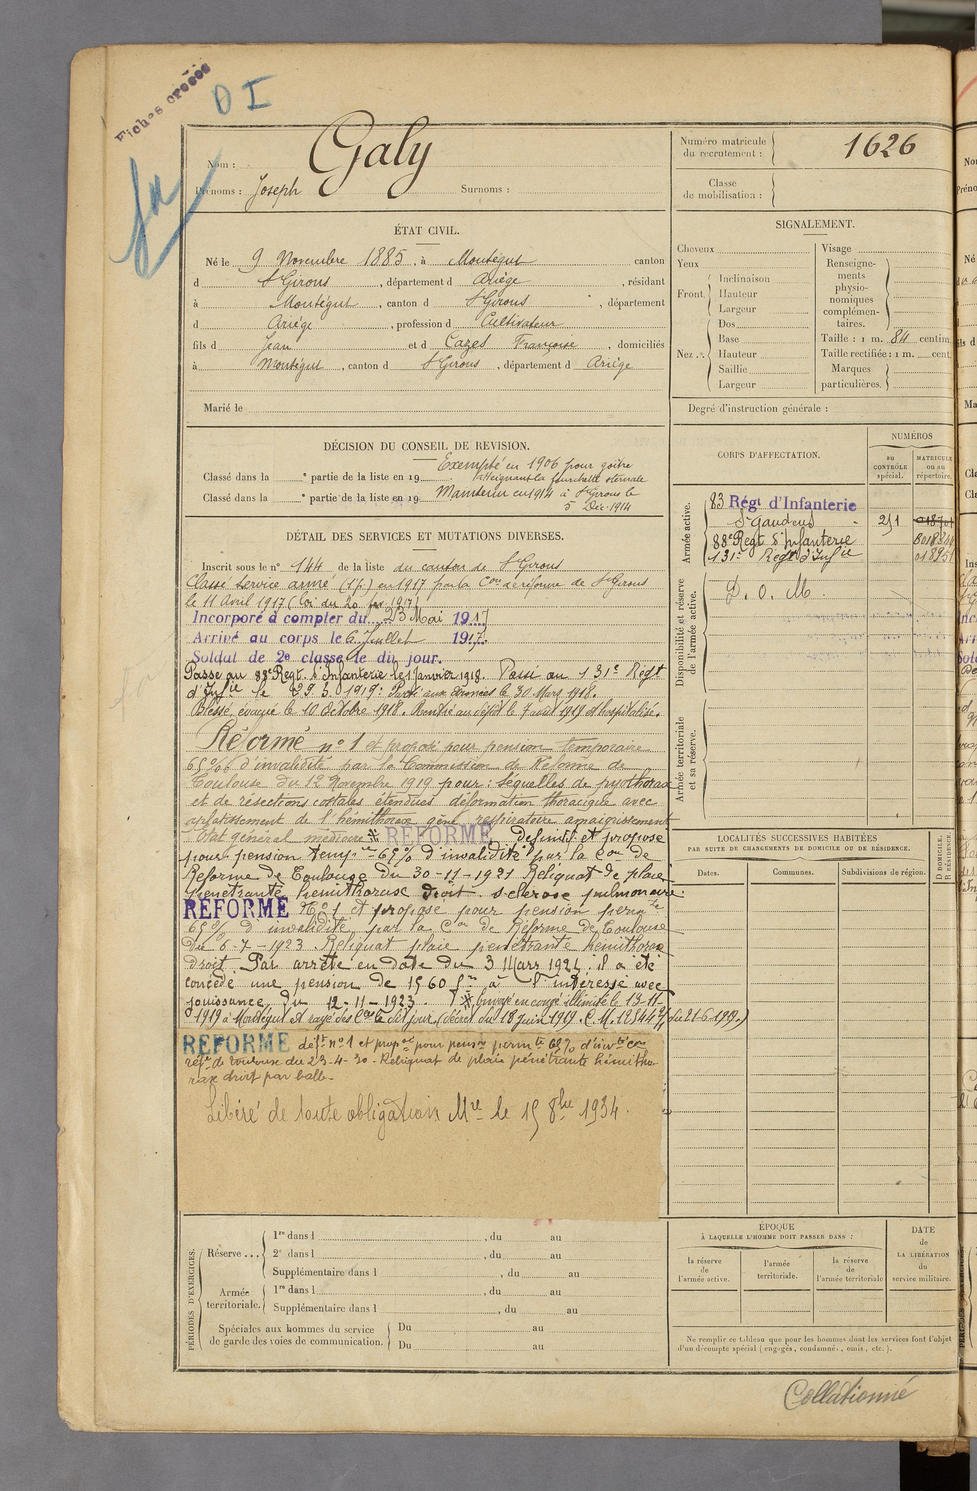 Fiches
D I
fa
Nom : Galy
Prénoms : Joseph Surnoms :
Numéro matricule du recrutement : 1626
Classe de mobilisation :
ÉTAT CIVIL.
Né le 9 Novembre 1885, à Montégut canton
d St Girons, département d Ariège, résidant
à Montégut, canton d St Girons, département
d Ariège, profession d Cultivateur
fils d Jean et d Cazes Françoise, domiciliés
à Montégut, canton d St Girons, département d Ariège
Marié le
SIGNALEMENT.
Cheveux
Yeux
Front Inclinaison
Hauteur
Largeur
Nez Dos
Base
Hauteur
Saillie
Largeur
Visage
Renseignements physionomiques complémentaires.
Taille : 1 m. 84 centim.
Taille rectifiée : 1 m. cent.
Marques particulières.
Degré d'instruction générale :
DÉCISION DU CONSEIL DE REVISION.
Exempté en 1906 pour goitre
Classé dans la e partie de la liste en 19 atteignant la fourchette sternale
Classé dans la e partie de la liste en 19 Maintenu en 1914 à St Girons le
5 Déc. 1914
DÉTAIL DES SERVICES ET MUTATIONS DIVERSES.
Inscrit sous le no 144 de la liste du canton de St Girons
Classé service armé (1 p.) en 1917 par la Con de réforme de St Girons
le 11 Avril 1917 (loi du 20 fev 1917)
Incorporé à compter du 23 Mai 1917
Arrivé au corps le 6 Juillet 1917
Soldat de 2e classe le dit jour.
Passé au 88e Regt. d'Infanterie le 1 janvier 1918. Passé au 131e Régt
d'Infie le 29.3.1919. Parti aux armées le 30 Mars 1918.
Blessé, évacué le 10 Octobre 1918. Rentré au dépôt le 7 août 1919 et hospitalisé.
Réformé no 1 et proposé pour pension temporaire
65% d'invalidité par la Commission de Réforme de
Toulouse du 12 Novembre 1919 pour : séquelles de pyothorax
et de résections costales étendues déformation thoracique avec
aplatissement de l'hémithorax gêne respiratoire amaigrissement
Etat général médiocre ※ RÉFORMÉ Definitif et proposé
pour pension temp re 65% d'invalidité par la Con de
Reforme de Toulouse du 30-11-1921 Reliquat de plaie
penetrante hemithorax droit sclerose pulmonaire.
RÉFORMÉ No 1 et proposé pour pension perm te
65% d'invalidité par la Con de Réforme de Toulouse
du 6-7-1923. Reliquat plaie penetrante hémithorax
droit. Par arrêté en date du 3 Mars 1924, il a été
concédé une pension de 1560 frs à l'intéressé avec
jouissance du 12-11-1923. ※ Envoyé en congé illimité le 13-11-
1919 à Montégut et rayé des Cles le dit jour, (décret du 18 juin 1919. C.M. 12544 du 21-6-1919.)
RÉFORMÉ deft no 1 et propsé pour pension perm te 65% d'invté Con
réfme de Toulouse du 23-4-30. Reliquat de plaie pénétrante hémitho-
rax droit par balle.
Libéré de toute obligation Mre le 15 8bre 1934.
CORPS D'AFFECTATION.
NUMÉROS
au CONTRÔLE spécial.
MATRICULE ou au répertoire.
Armée active.
83 Régt d'Infanterie
St Gaudens 251
88e Regt d'Infanterie
131e Regt d'Infie
Disponibilité et réserve de l'armée active.
D. O. M.
Armée territoriale et sa réserve.
LOCALITÉS SUCCESSIVES HABITÉES
PAR SUITE DE CHANGEMENTS DE DOMICILE OU DE RÉSIDENCE.
Dates.
Communes.
Subdivisions de région.
D DOMICILE. R RÉSIDENCE.
PÉRIODES D'EXERCICES.
Réserve ... 1re dans l , du au
2e dans l , du au
Supplémentaire dans l , du au
Armée territoriale. 1re dans l , du au
Supplémentaire dans l , du au
Spéciales aux hommes du service de garde des voies de communication. Du au
Du au
ÉPOQUE
À LAQUELLE L'HOMME DOIT PASSER DANS :
la réserve de l'armée active.
l'armée territoriale.
la réserve de l'armée territoriale
DATE de LA LIBÉRATION du service militaire.
Ne remplir ce tableau que pour les hommes dont les services font l'objet
d'un décompte spécial (engagés, condamnés, omis, etc.).
Collationné